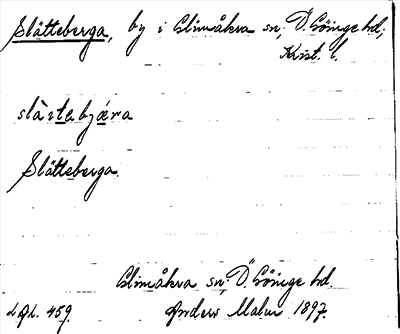 Slätteberga, by i Glimåkra sn, Ö. Göinge hd,
Krist. l.
slàtabjæra
Slätteberga.
Glimåkra sn, Ö. Göinge hd.
Anders Malm 1897.